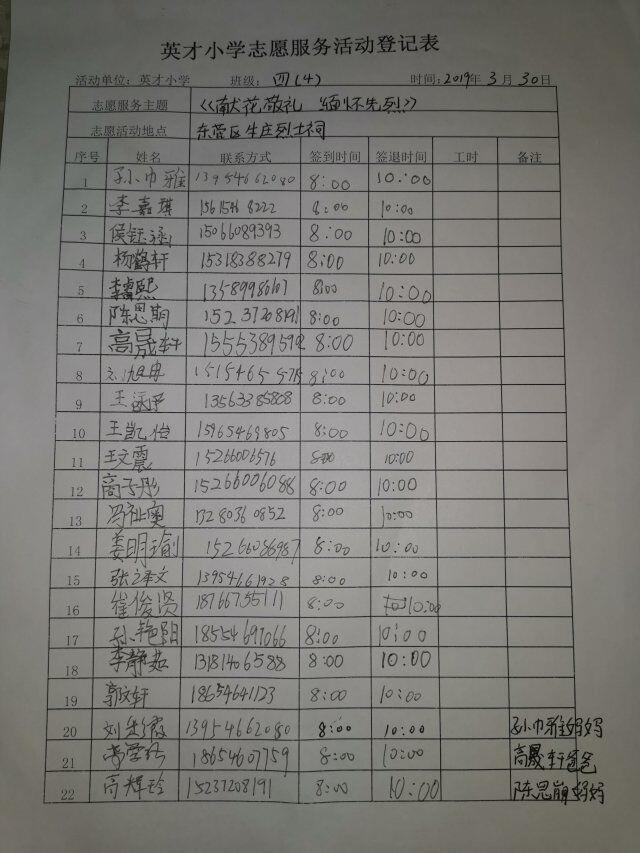 英才小学志愿服务活动登记表
活动单位：英才小学 班级：四(4) 时间：2019年3月30日
志愿服务主题 《献花敬礼 缅怀先烈》
志愿活动地点 东营区牛庄烈士祠
序号 姓名 联系方式 签到时间 签退时间 工时 备注
1 孙巾雅 13954662080 8:00 10:00
2 李嘉琪 15615468222 8:00 10:00
3 侯钰涵 15066089393 8:00 10:00
4 杨鹤轩 15318388279 8:00 10:00
5 李睿熙 8:00 10:00
6 陈思萌 15237208191 8:00 10:00
7 高晟轩 8:00 10:00
8 8:00 10:00
9 王涵平 13563385808 8:00 10:00
10 王凯怡 15965469805 8:00 10:00
11 王文震 15266006576 8:00 10:00
12 高子彤 15266006088 8:00 10:00
13 冯祉奥 13280360852 8:00 10:00
14 姜明瑜 15266086987 8:00 10:00
15 张译文 13954661928 8:00 10:00
16 崔俊贤 18766755111 8:00 10:00
17 孙艳阳 18554697066 8:00 10:00
18 李静茹 13181406588 8:00 10:00
19 郭文轩 18654641123 8:00 10:00
20 13954662080 8:00 10:00 孙巾雅妈妈
21 18654607759 8:00 10:00 高晟轩爸爸
22 高辉玲 15237208191 8:00 10:00 陈思萌妈妈